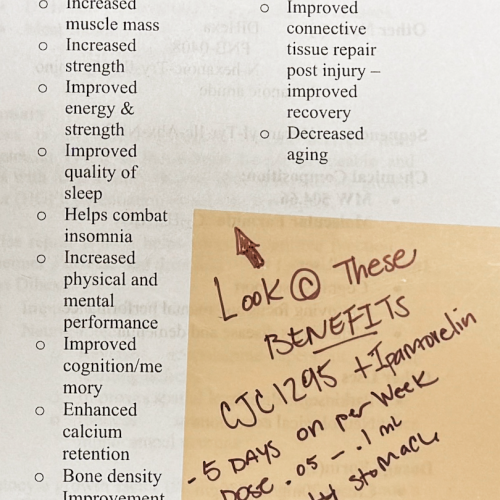 ○ Increased
muscle mass
○ Increased
strength
○ Improved
energy &
strength
○ Improved
quality of
sleep
○ Helps combat
insomnia
○ Increased
physical and
mental
performance
○ Improved
cognition/me
mory
○ Enhanced
calcium
retention
○ Bone density
Improvement
○ Improved
connective
tissue repair
post injury –
improved
recovery
○ Decreased
aging
Look @ These
BENEFITS
CJC1295 + Ipamorelin
- 5 DAYS on per Week
DOSE .05 - .1 ml
stomach